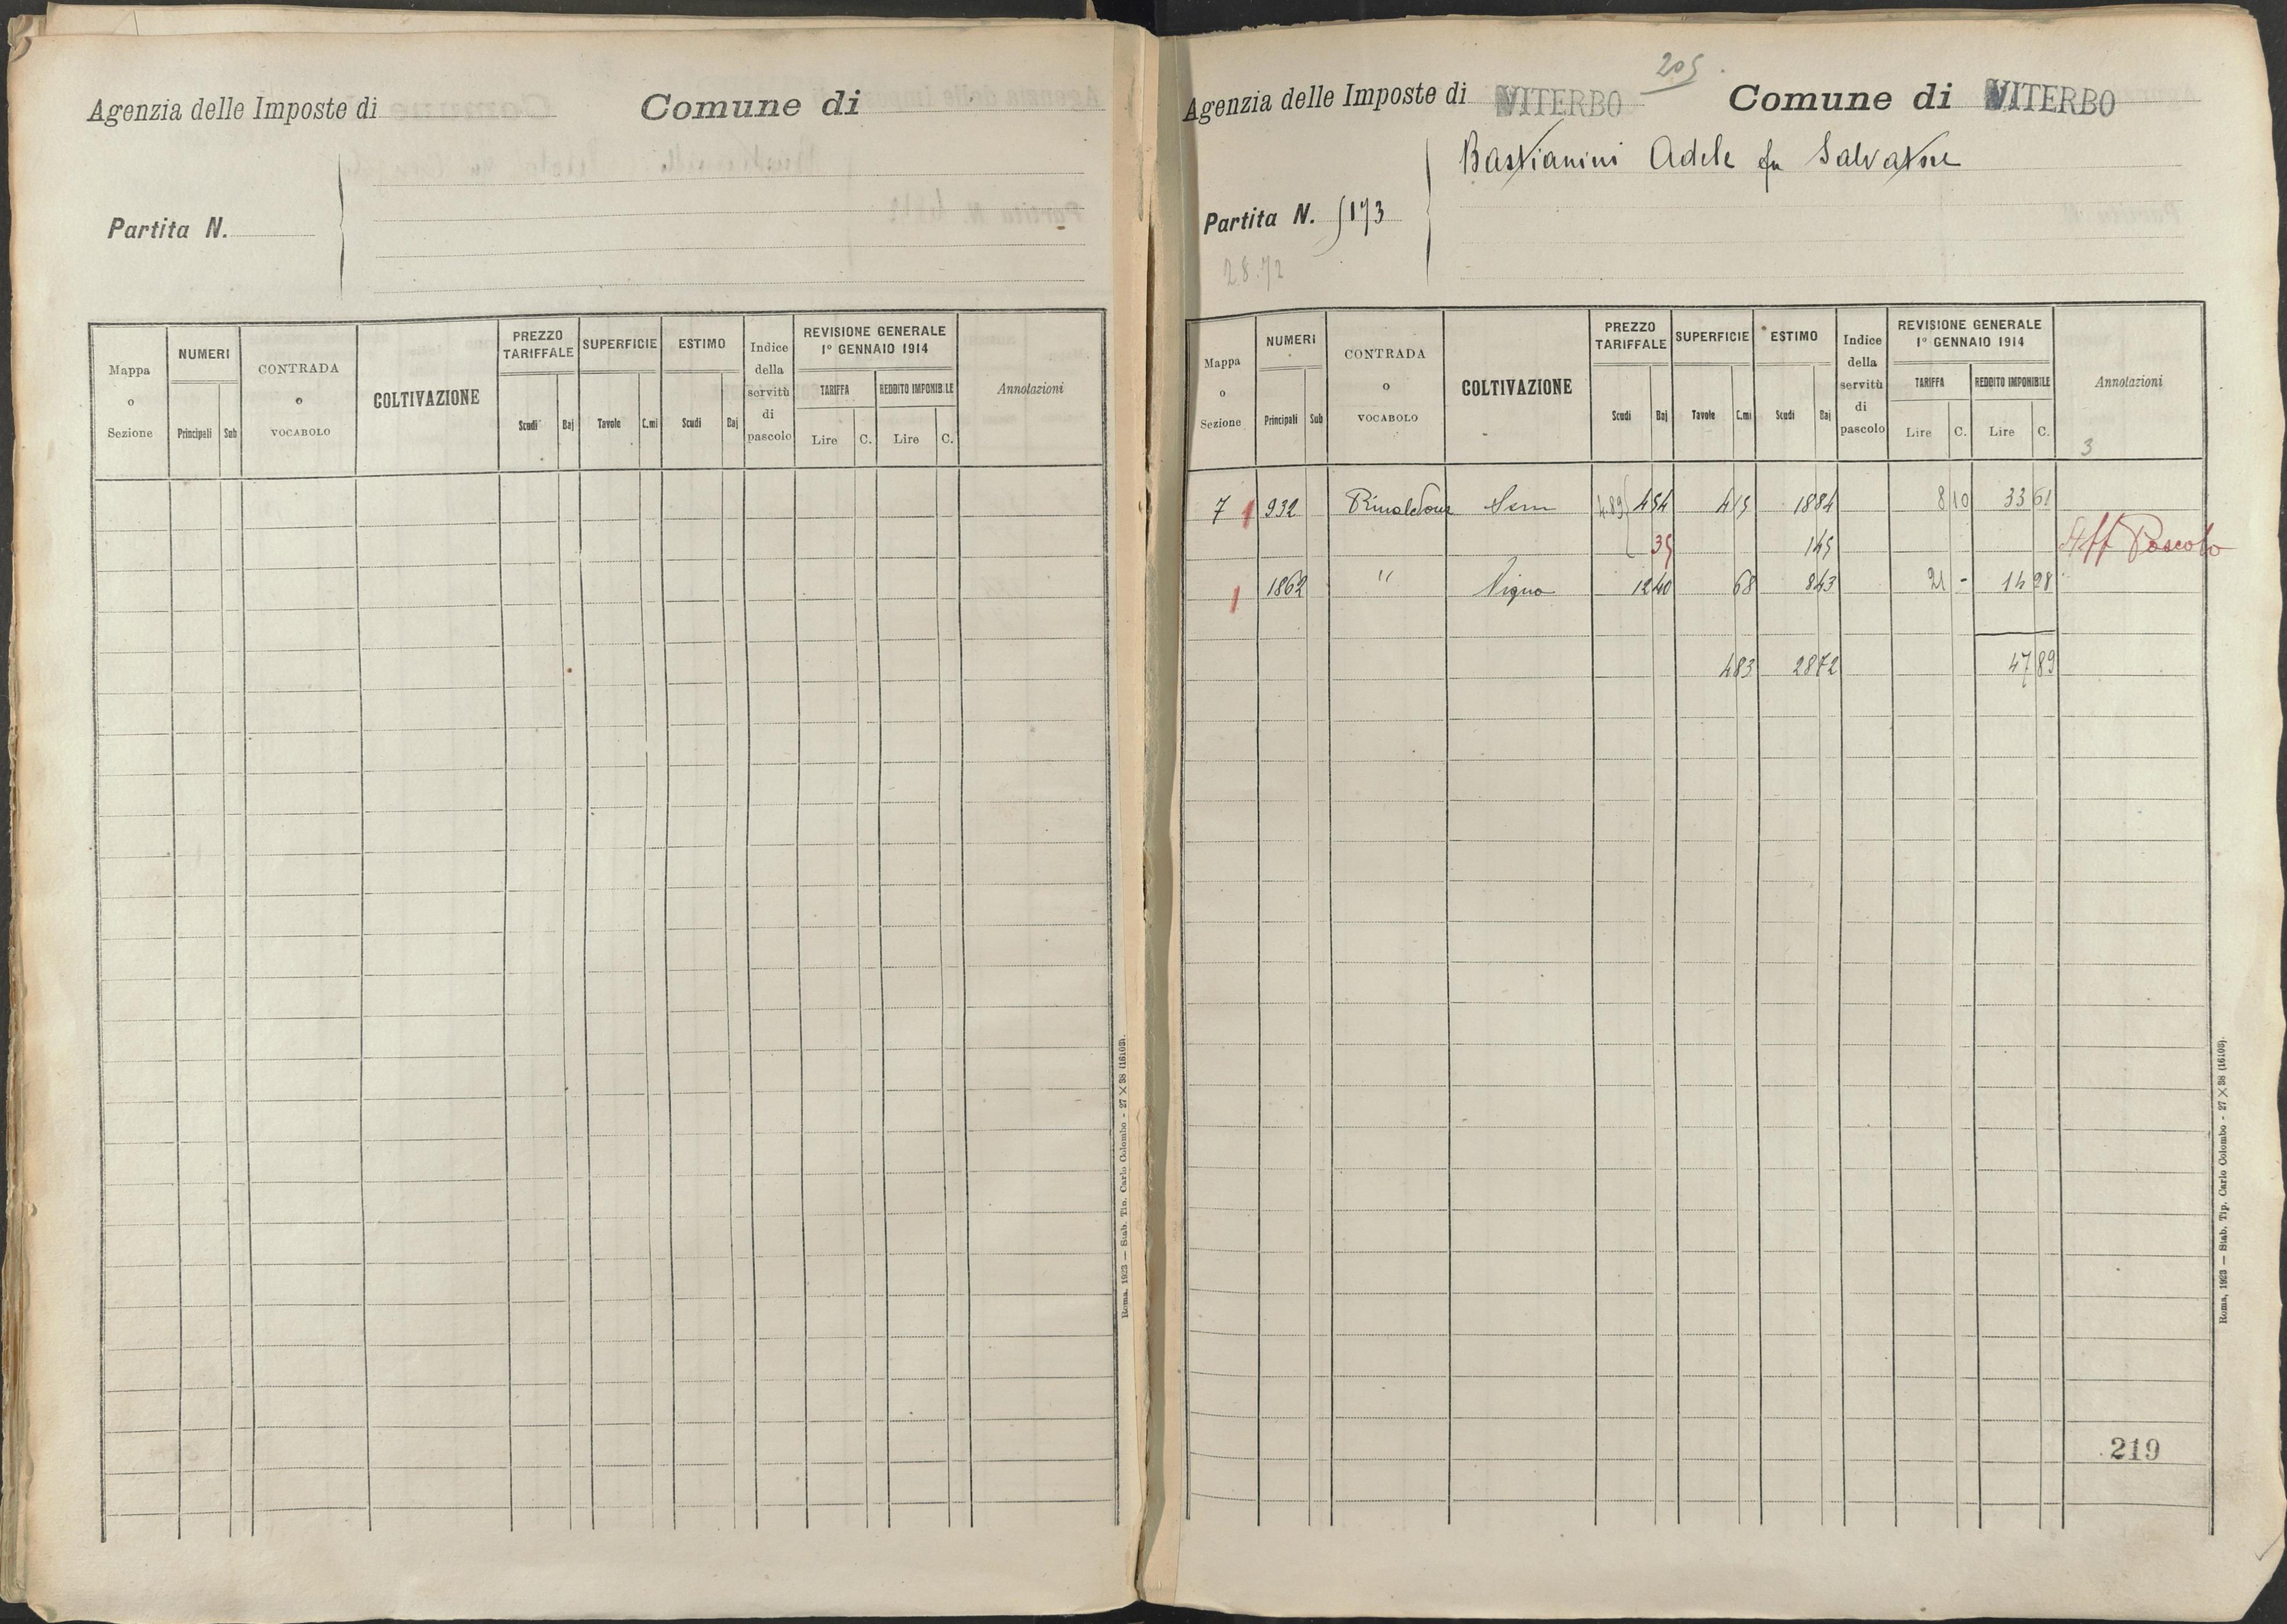 Agenzia delle Imposte di Comune di
Partita N.
Mappa o Sezione NUMERI Principali Sub CONTRADA o VOCABOLO COLTIVAZIONE PREZZO TARIFFALE Scudi Baj SUPERFICIE Tavole C.mi ESTIMO Scudi Baj Indice della servitù di pascolo REVISIONE GENERALE 1° GENNAIO 1914 TARIFFA Lire C. REDDITO IMPONIBILE Lire C. Annotazioni
Roma, 1923 — Stab. Tip. Carlo Colombo - 27 × 38 (16103).
205
Agenzia delle Imposte di VITERBO Comune di VITERBO
Bastianini Adele fu Salvatore
Partita N. 5173
28.72
Mappa o Sezione NUMERI Principali Sub CONTRADA o VOCABOLO COLTIVAZIONE PREZZO TARIFFALE Scudi Baj SUPERFICIE Tavole C.mi ESTIMO Scudi Baj Indice della servitù di pascolo REVISIONE GENERALE 1° GENNAIO 1914 TARIFFA Lire C. REDDITO IMPONIBILE Lire C. Annotazioni
3
7 1 932 Sem 4.89 454 415 1884 8 10 33 61
35 145 Aff Pascolo
1 1862 " Vigna 1240 68 843 21 - 14 28
483 2872 47 89
219
Roma, 1923 — Stab. Tip. Carlo Colombo - 27 × 38 (16103).